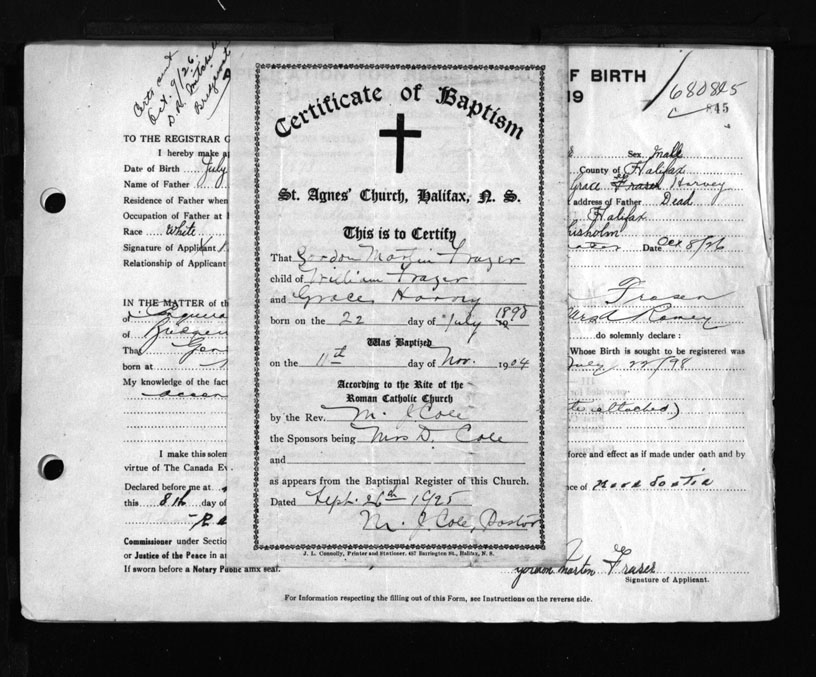 Certs sent
Oct. 9/26.
OF BIRTH
680845
845
19
TO THE REGISTRAR G
I hereby make a
Sex Male
Date of Birth July
County of Halifax
Name of Father
Grace Fraser Harvey
Residence of Father when
address of Father Dead
Occupation of Father at
Halifax
Race White
Signature of Applicant
Date Oct 8/26
Relationship of Applicant
IN THE MATTER of th
Fraser
of
of
do solemnly declare :
That
Whose Birth is sought to be registered was
born at
July 22/98
My knowledge of the fact
attached)
I make this solem
force and effect as if made under oath and by
virtue of The Canada Ev
Declared before me at
nce of Nova Scotia
this 8th day of
Commissioner under Sectio
or Justice of the Peace in a
If sworn before a Notary Public
seal.
Gordon Martin Fraser
Signature of Applicant.
For Information respecting the filling out of this Form, see Instructions on the reverse side.
Certificate of Baptism
St. Agnes' Church, Halifax, N. S.
This is to Certify
That Gordon Martin Frazer
child of William Frazer
and Grace Harvey
born on the 22 day of July 1898
Was Baptized
on the 11th day of Nov. 1904
According to the Rite of the
Roman Catholic Church
by the Rev. M. J. Cole
the Sponsors being Mrs D. Cole
and
as appears from the Baptismal Register of this Church.
Dated Sept. 26th 1925
M. J. Cole, Pastor
J. L. Connolly, Printer and Stationer. 457 Barrington St., Halifax, N. S.